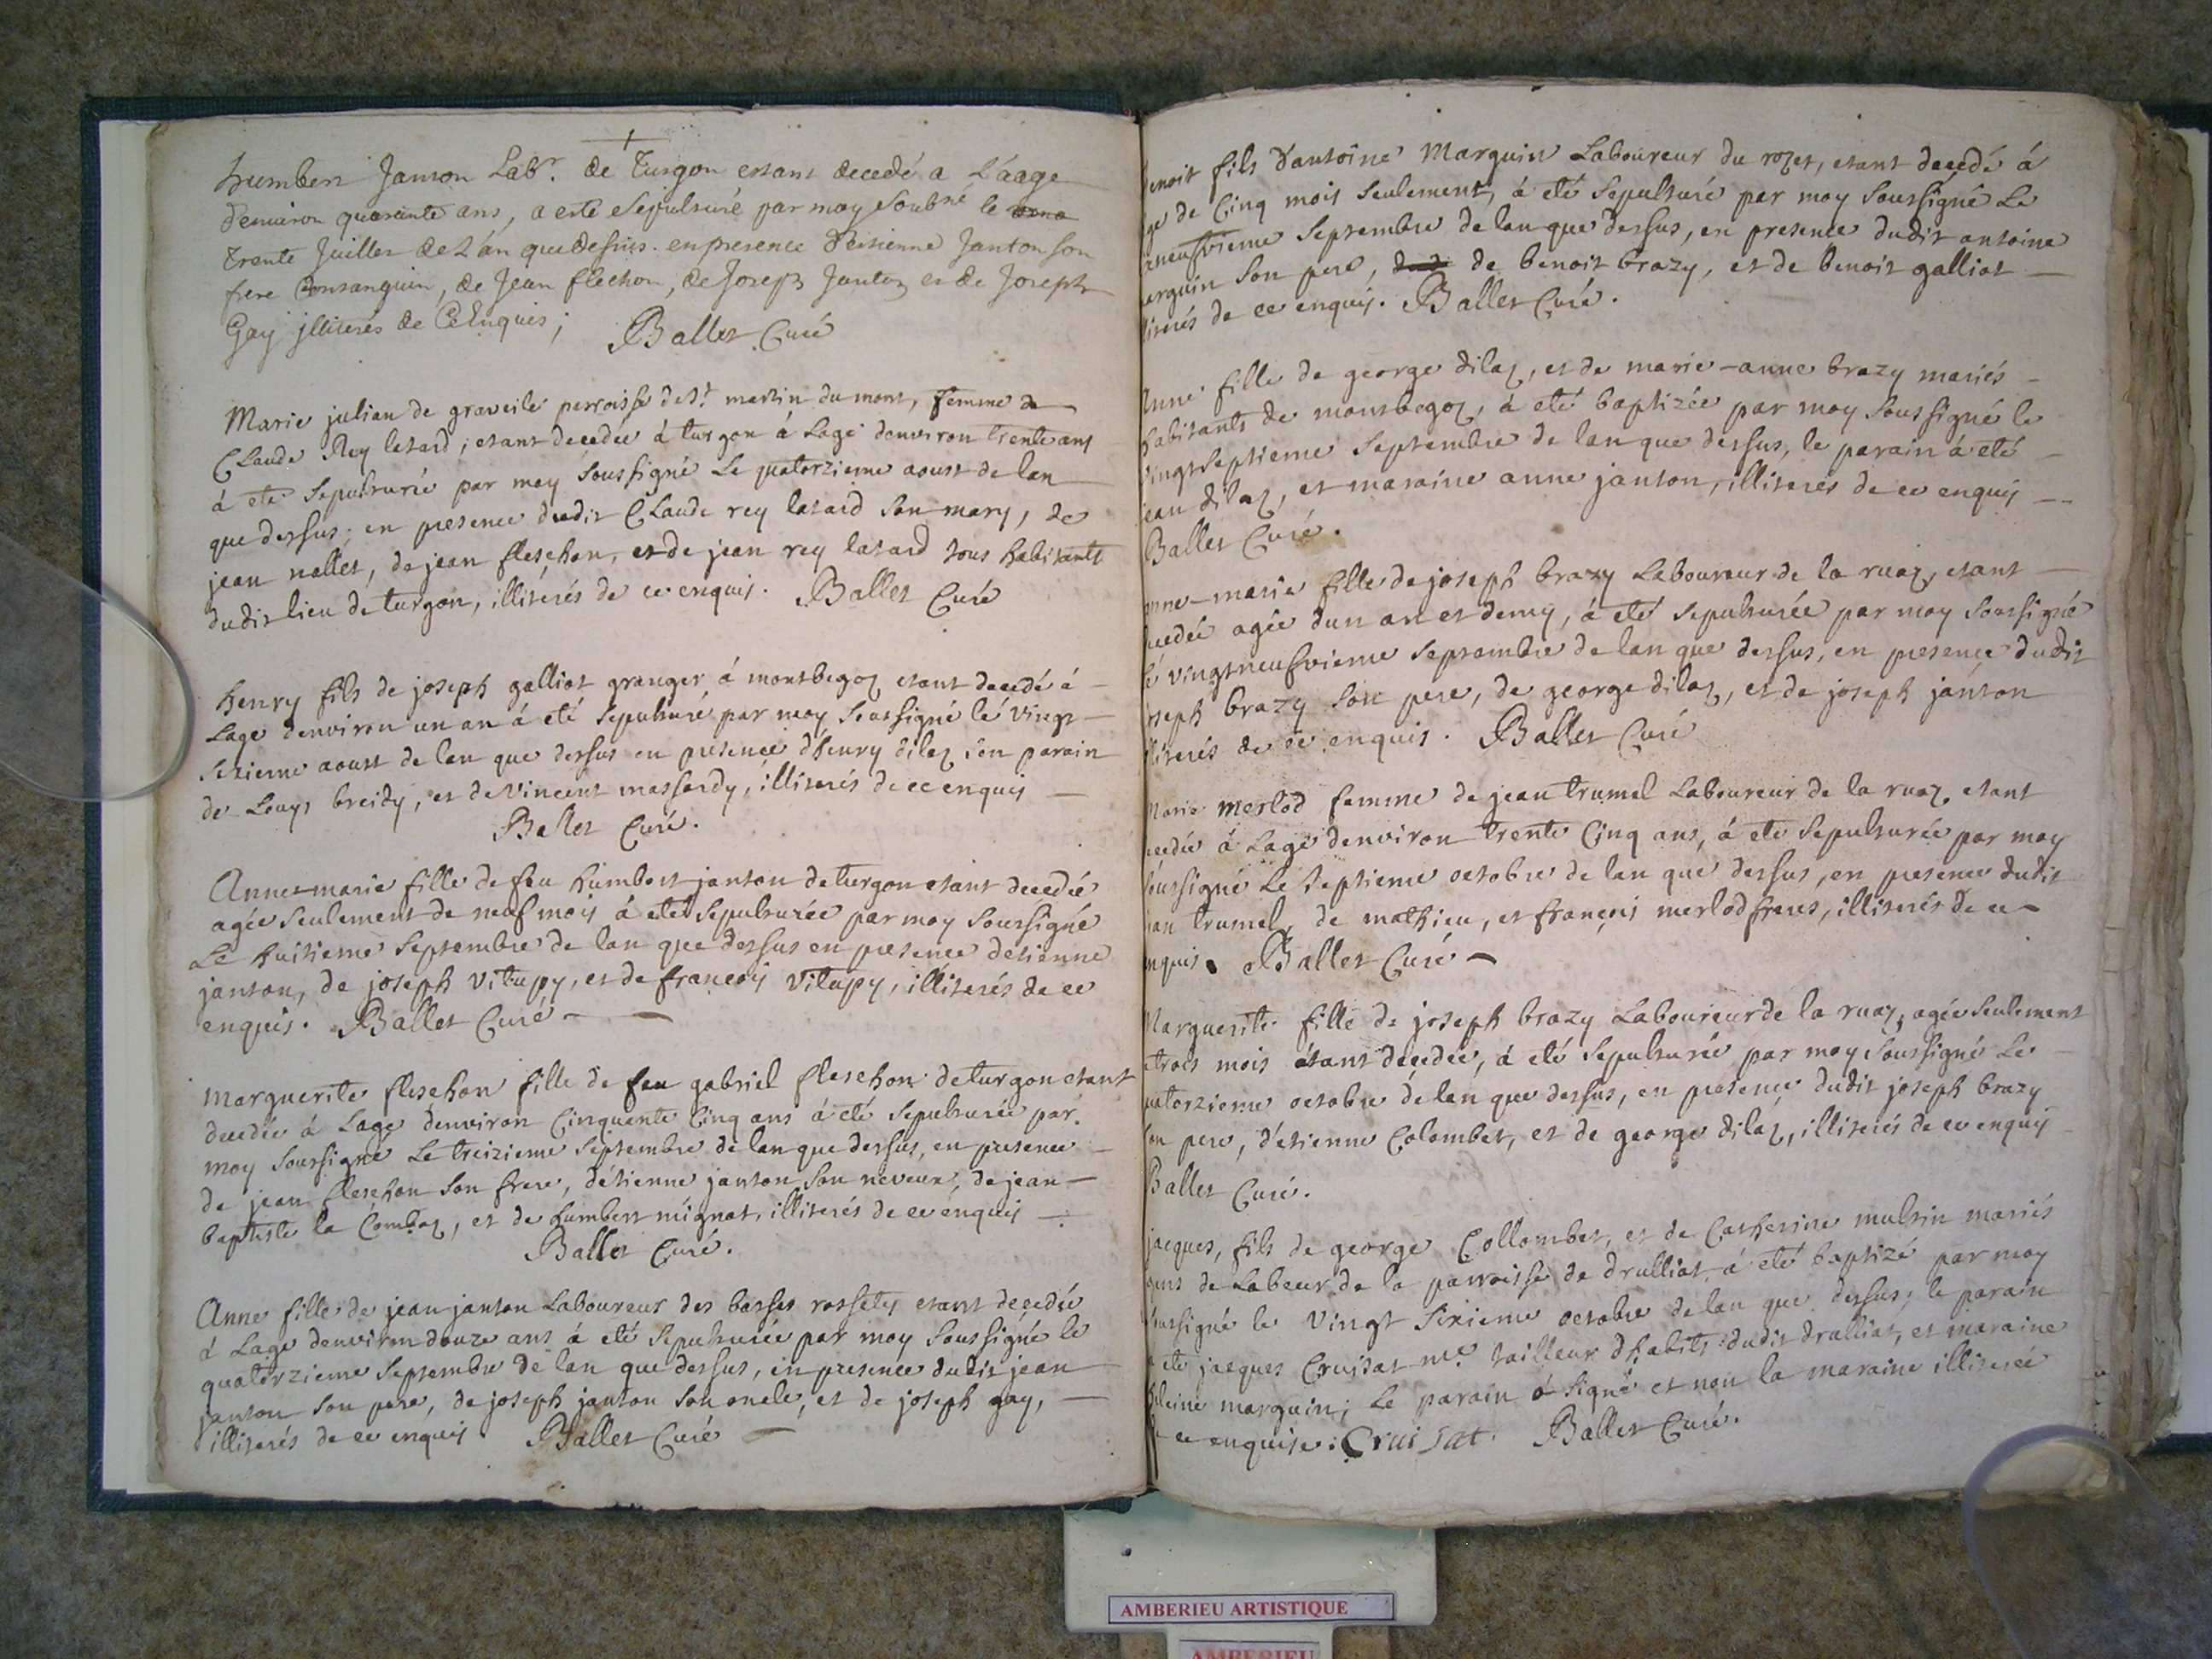 humbert Janton Lab.r de Turgon estant decedé a L'aage
d'enuiron quarante ans, a esté sepulturé par moy soubné le
trente Juillet de L'an que dessus. en presence d'estienne Janton son
frere Consanguin, de Jean flechon, de Joseph Janton et de Joseph
Gay illiterés de Ce Enquis; Ballet Curé
Marie julian de graveile parroisse de St martin du mont, femme de
Claude Rey letard, etant decedée á turgon á Lage denviron trente ans
á eté Sepulturée par moy soussigné Le quatorzieme aoust de lan
que dessus, en presence dudit Claude rey latard son mary, de
jean nallet, de jean fleschon, et de jean rey latard tous habitants
dudit lieu de turgon, illiterés de ce enquis. Ballet Curé
henry fils de joseph galliot granger á montbegoz etant decedé á
Lage denviron un an á eté Sepulturé par moy Soussigné le vingt
sezieme aoust de lan que dessus en presence dhenry dilaz son parain
de Louys breidy, et de Vincent massardy, illiterés de ce enquis
Ballet Curé.
Anne-marie fille de feu humbert janton de turgon etant decedée
agée seulement de neuf mois á eté Sepulturée par moy Soussigné
Le huitieme Septembre de lan que dessus en presence detienne
janton, de joseph vitupy, et de françois vitupy, illiterés de ce
enquis. Ballet Curé
Marguerite fleschon fille de feu gabriel fleschon de turgon etant
decedée á Lage denviron Cinquante Cinq ans á eté Sepulturée par
moy Soussigné Le treizieme Septembre de lan que dessus, en presence
de jean fleschon son frere, détienne janton son neveur, de jean
baptiste la Combaz, et de humbert mignat, illiterés de ce enquis
Ballet Curé.
Anne fille de jean janton Laboureur des basses rossety etant decedée
á Lage denviron douze ans á eté Sepulturée par moy Soussigné le
quatorzieme Septembre de lan que dessus, en presence dudit jean
janton son pere, de joseph janton son oncle, et de joseph gay,
illiterés de ce enquis Ballet Curé
enoit fils d'antoine Marguin Laboureur du rozet, etant decedé á
ge de Cinq mois seulement, á eté Sepulturé par moy Soussigné Le
neufvieme Septembre de lan que dessus, en presence dudit antoine
arguin Son pere, de benoit brazy, et de benoit galliot
literés de ce enquis. Ballet Curé.
Anne fille de george dilaz, et de marie-anne brazy mariés
habitants de montbegoz, á eté baptizée par moy Soussigné le
vingtseptieme Septembre de lan que dessus, le parain á eté
jean dilaz, et maraine anne janton, illiterés de ce enquis
Ballet Curé.
nne-marie fille de joseph brazy Laboureur de la ruaz, etant
cedée agée dun an et demy, á eté sepulturée par moy Soussigné
le vingtneufvieme Septembre de lan que dessus, en presence dudit
oseph brazy son pere, de george dilaz, et de joseph janton
lliterés de ce enquis. Ballet Curé
Marie merlod femme de jean trumel Laboureur de la ruaz, etant
cedée á Lage denviron trente Cinq ans, á eté Sepulturée par moy
Soussigné Le septieme octobre de lan que dessus, en presence dudit
jean trumel, de mathieu, et françois merlod freres, illiterés de ce
nquis. Ballet Curé
Marguerite fille de joseph brazy Laboureur de la ruaz, agée seulement
trois mois étant decedée, á eté Sepulturée par moy Soussigné Le
uatorzieme octobre de lan que dessus, en presence dudit joseph brazy
son pere, d'etienne Colombet, et de george dilaz, illiterés de ce enquis
Ballet Curé.
jacques, fils de george Collombet, et de Catherine multin mariés
gens de Labeur de la parroisse de drulliat, á eté baptizé par moy
Soussigné le Vingt Sixieme octobre de lan que dessus; le parain
a eté jacques Cruisat m.e tailleur dhabits dudit drulliat, et maraine
marguin; Le parain á signé et non la maraine illiterée
ce enquise: Cruisat. Ballet Curé.
AMBERIEU ARTISTIQUE
AMBERIEU